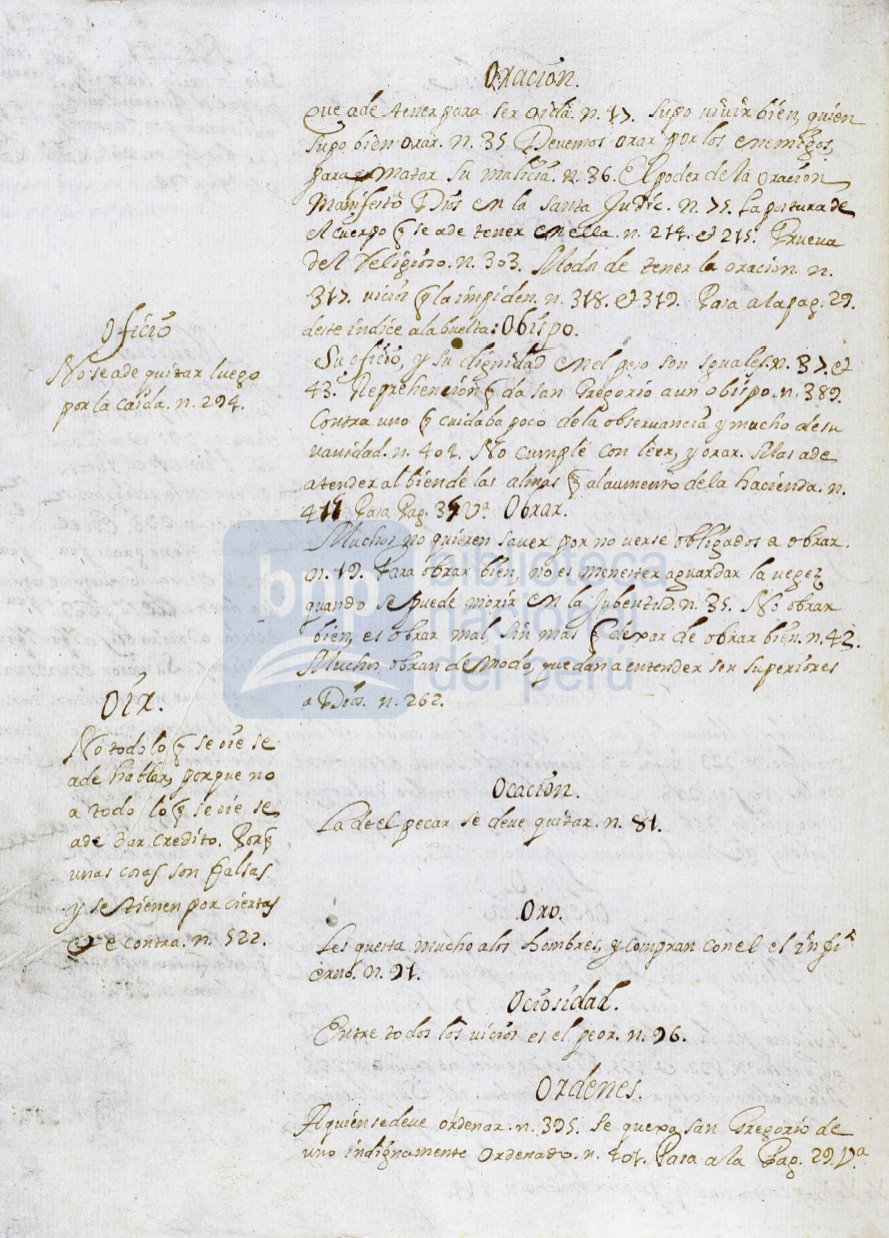 Oración.
Que a de tener para ser oida. n. 17. Supo vivir bien, quien
supo bien orar. n. 35 Devemos orar por los enemigos,
para matar su malicia. n. 36. El poder de la oracion
Manifestó Dios en la santa Judic. n. 75. La postura de
el cuerpo q̃ se a de tener en ella. n. 214. et 215. Prueva
del Religioso. n. 303. Modo de tener la oracion. n.
317. vicios q̃ la impiden. n. 318. et 319. Pasa a la pag. 29.
deste indice a la buelta: Obispo.
Su oficio, y su dignidad en el peso son yguales. n. 37. et
43. Reprehención q̃ da san Gregorio a un obispo. n. 389.
Contra uno q̃ cuidaba poco de la observancia y mucho de su
vanidad. n. 404. No cumple con leer, y orar. Mas a de
atender al bien de las almas q̃ al aumento de la hacienda. n.
411 Pasa Pag. 35 Vª Obrar.
Muchos no quieren saver por no verse obligados a obrar.
n. 19. Para obrar bien, no es menester aguardar la vegez
quando se puede morir en la Jubentud. n. 35. No obrar
bien, es obrar mal, sin mas q̃ dexar de obrar bien. n. 42.
Muchos obran de modo, que dan a entender ser superiores
a Dios. n. 262.
Oficio
No se a de quitar luego
por la caida. n. 294.
Oír.
No todo lo q̃ se oie se
a de hablar, porque no
a todo lo q̃ se oie se
a de dar credito. Porq̃
unas cosas son falsas
y se tienen por ciertas
et e contra. n. 522.
Ocación.
La de el pecar se deve quitar. n. 81.
Oro.
Les questa mucho a los hombres, y compran con el el infi
erno. n. 91.
Ociosidad.
Entre todos los vicios es el peor. n. 96.
Ordenes.
A quien se deve ordenar. n. 395. Se quexa san Gregorio de
uno indignamente ordenado. n. 401. Pasa a la Pag. 29. Vª
bnp biblioteca
nacional
del perú